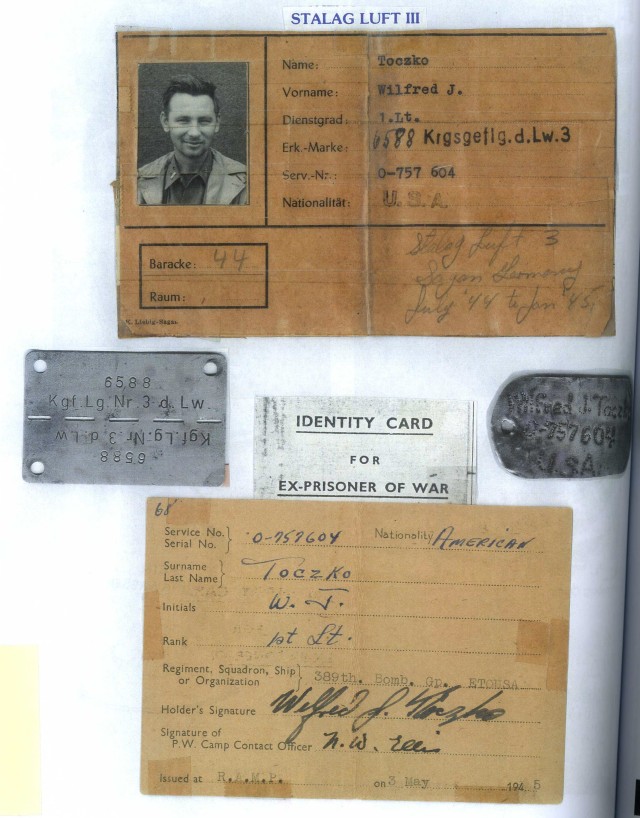 STALAG LUFT III
Name: Toczko
Vorname: Wilfred J.
Dienstgrad: 1.Lt.
Erk.-Marke: 6588 Krgsgeflg.d.Lw.3
Serv.-Nr.: O-757 604
Nationalität: U.S.A.
Baracke: 44
Raum:
Stalag Luft 3
Sagan Germany
July '44 to Jan '45
6588
Kgf.Lg.Nr.3.d.Lw.
Kgf.Lg.Nr.3.d.Lw
6588
Wilfred J. Toczko
O-757604
U.S.A.
IDENTITY CARD
FOR
EX-PRISONER OF WAR
68
Service No. O-757604 Nationality AMERICAN
Serial No.
Surname Toczko
Last Name
Initials W. J.
Rank 1st Lt.
Regiment, Squadron, Ship
or Organization 389th. Bomb. Gp. ETOUSA
Holder's Signature Wilfred J. Toczko
Signature of
P.W. Camp Contact Officer N.W. Ellis
Issued at R.A.M.P. on 3 May 1945